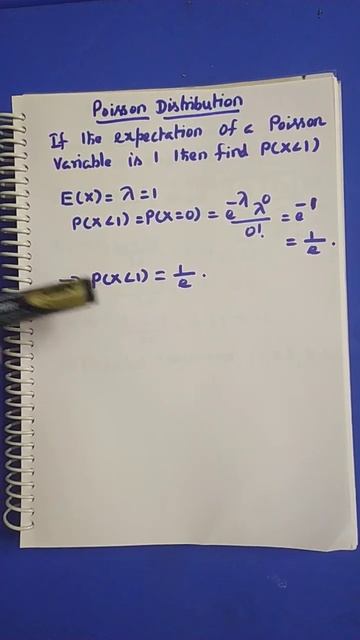 Poisson Distribution
If the expectation of a Poisson
Variable is 1 then find P(X<1)
E(X) = λ = 1
P(X<1) = P(X=0) = e^-λ λ^0 / 0! = e^-1
= 1/e .
P(X<1) = 1/e .